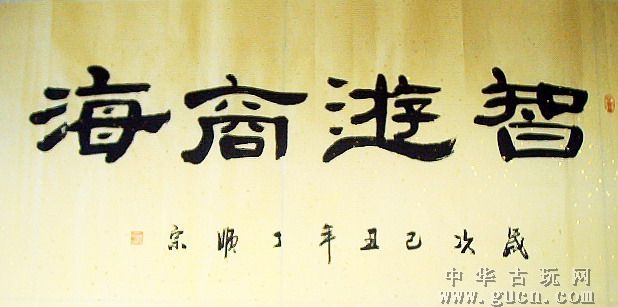 智遊商海
歲次己丑年丁顺宗
中华古玩网
www.gucn.com